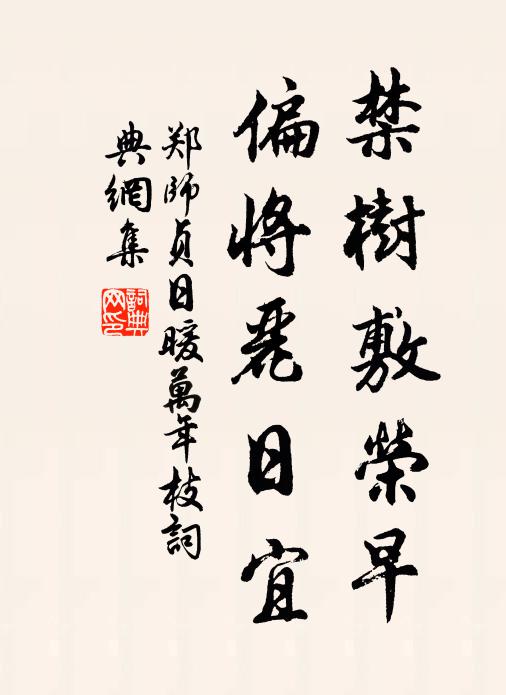 禁樹敷榮早
偏將麗日宜
郑師貞日暖萬年枝詞
典網集
詞典網印